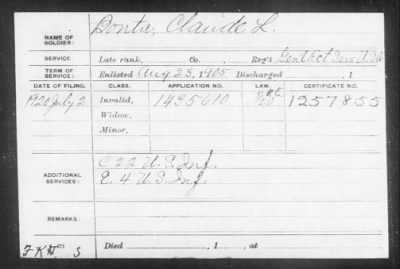 NAME OF SOLDIER: Donta, Claude L.
SERVICE: Late rank, Co. , Reg't Genl
TERM OF SERVICE: Enlisted Aug 23, 1905 Discharged , 1
DATE OF FILING. CLASS. APPLICATION NO. LAW. CERTIFICATE NO.
1920 July 2 Invalid, 1435610 1257855
Widow,
Minor,
C 22 U.S. Inf.
ADDITIONAL SERVICES: E. 4 U.S. Inf.
REMARKS:
Died , 1 , at